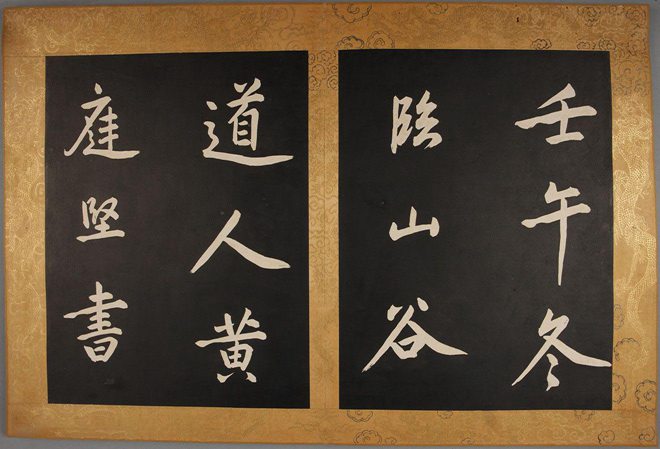 壬午冬
臨山谷
道人黄
庭堅書